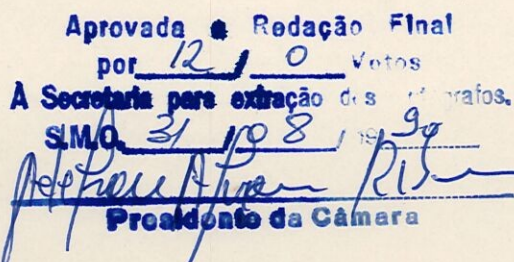 Aprovada a Redação Final
por 12 / 0 Votos
À Secretaria para extração dos autógrafos.
S.M.O. 31 / 08 / 19 99
Presidente da Câmara